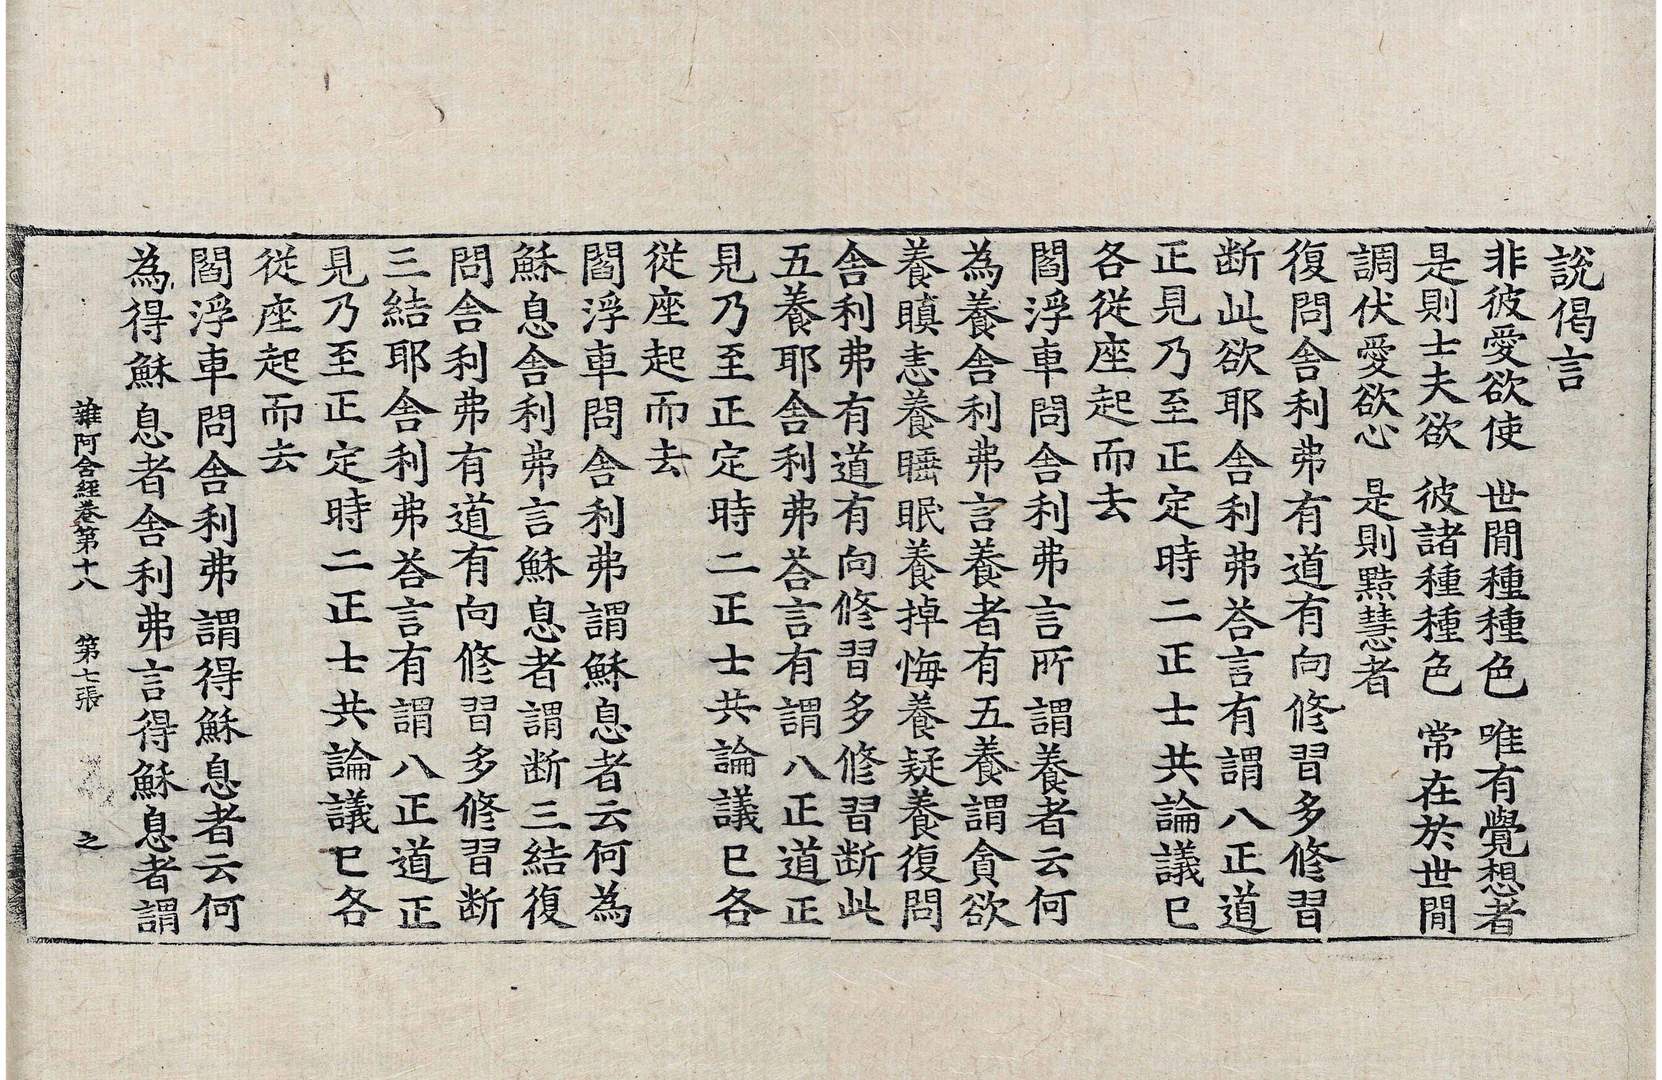 說偈言
非彼愛欲使 世閒種種色 唯有覺想者
是則士夫欲 彼諸種種色 常在於世閒
調伏愛欲心 是則黠慧者
復問舍利弗有道有向修習多修習
断此欲耶舍利弗荅言有謂八正道
正見乃至正定時二正士共論議已
各從座起而去
閻浮車問舍利弗言所謂養者云何
為養舍利弗言養者有五養謂貪欲
養瞋恚養睡眠養掉悔養疑養復問
舍利弗有道有向修習多修習断此
五養耶舍利弗荅言有謂八正道正
見乃至正定時二正士共論議已各
從座起而去
閻浮車問舍利弗謂穌息者云何為
穌息舍利弗言穌息者謂断三結復
問舍利弗有道有向修習多修習断
三結耶舍利弗荅言有謂八正道正
見乃至正定時二正士共論議已各
從座起而去
閻浮車問舍利弗謂得穌息者云何
為得穌息者舍利弗言得穌息者謂
雜阿含經卷第十八 第七張 之